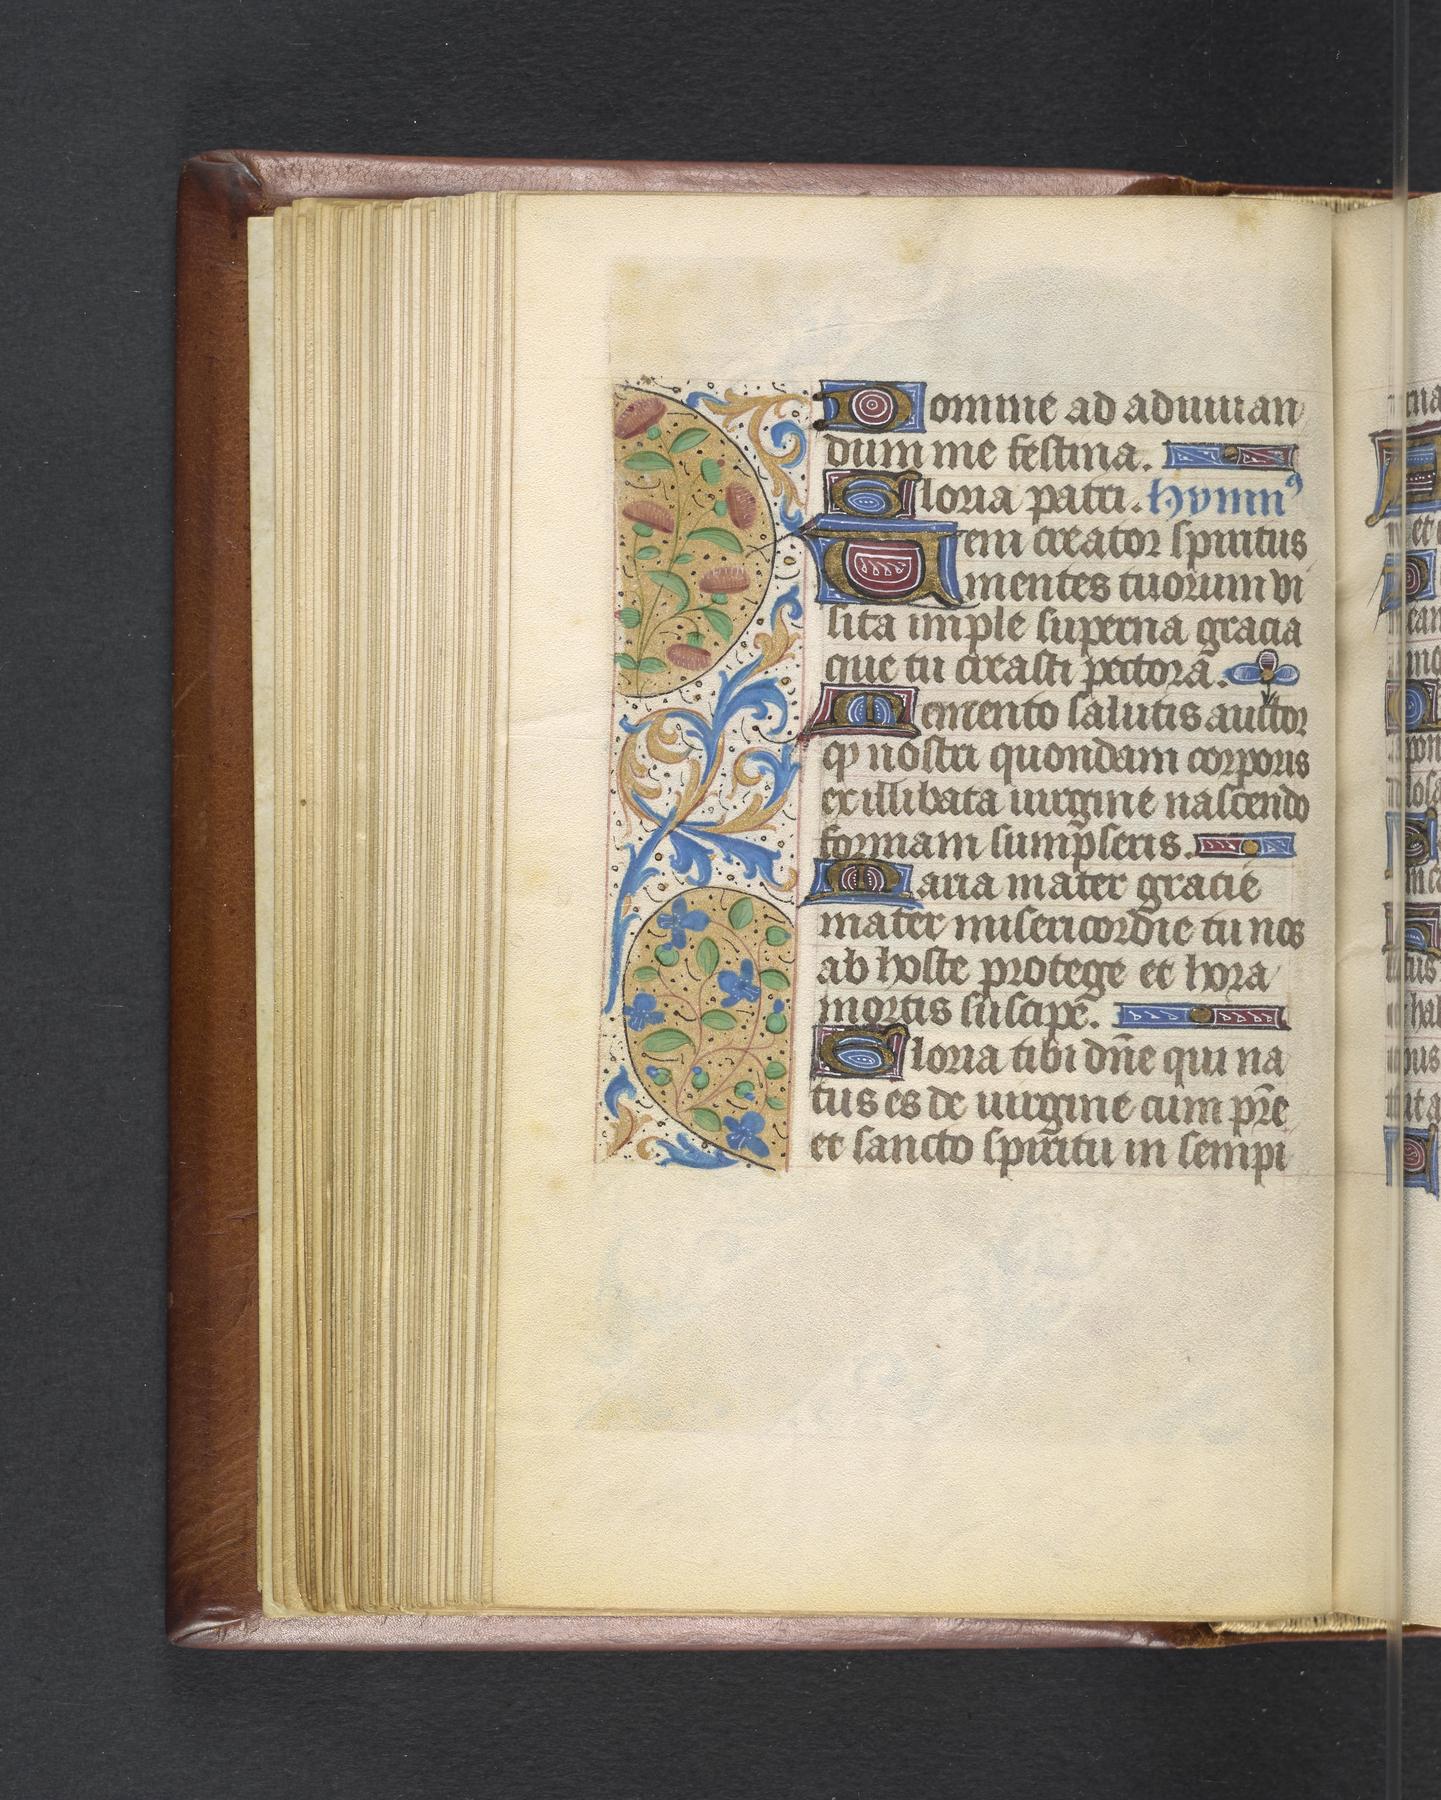 Domine ad adiuuan
dum me festina.
Gloria patri. hymnꝰ
Veni creator spiritus
mentes tuorum vi
sita imple superna gracia
que tu creasti pectora.
Memento salutis auctor
qp nostri quondam corporis
ex illibata uirgine nascendo
formam sumpseris.
Maria mater gracie
mater misericordie tu nos
ab hoste protege et hora
mortis suscipe.
Gloria tibi dñe qui na
tus es de uirgine cum pr̃e
et sancto spiritu in sempi